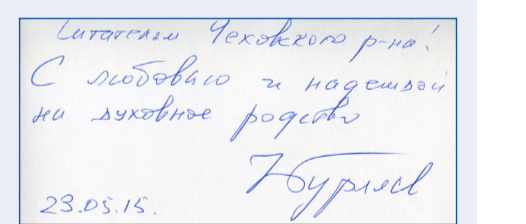 Читателям Чеховского р-на!
С любовью и надеждой
на духовное родство
НБурляев
23.05.15.